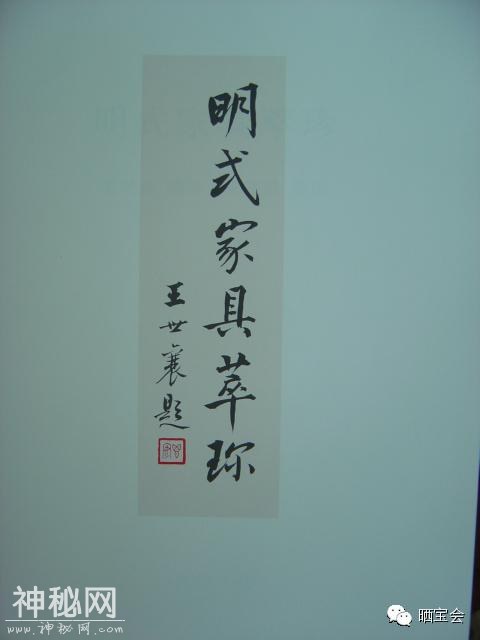 明式家具萃珎
王世襄题
神秘网
www.神秘网.com
晒宝会